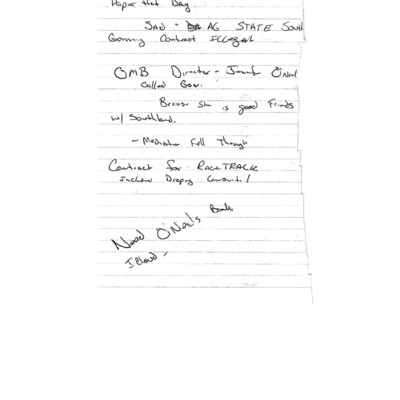 Paper that Day.
SAD - AG STATE South
Gaming Contract Illegal
OMB Director - O'Neal
called Gov.
Because she is good friends
w/ Southland.
- Mediation Fell Through
Contract for RACETRACK
includes
Need O'Neal's
ICloud -